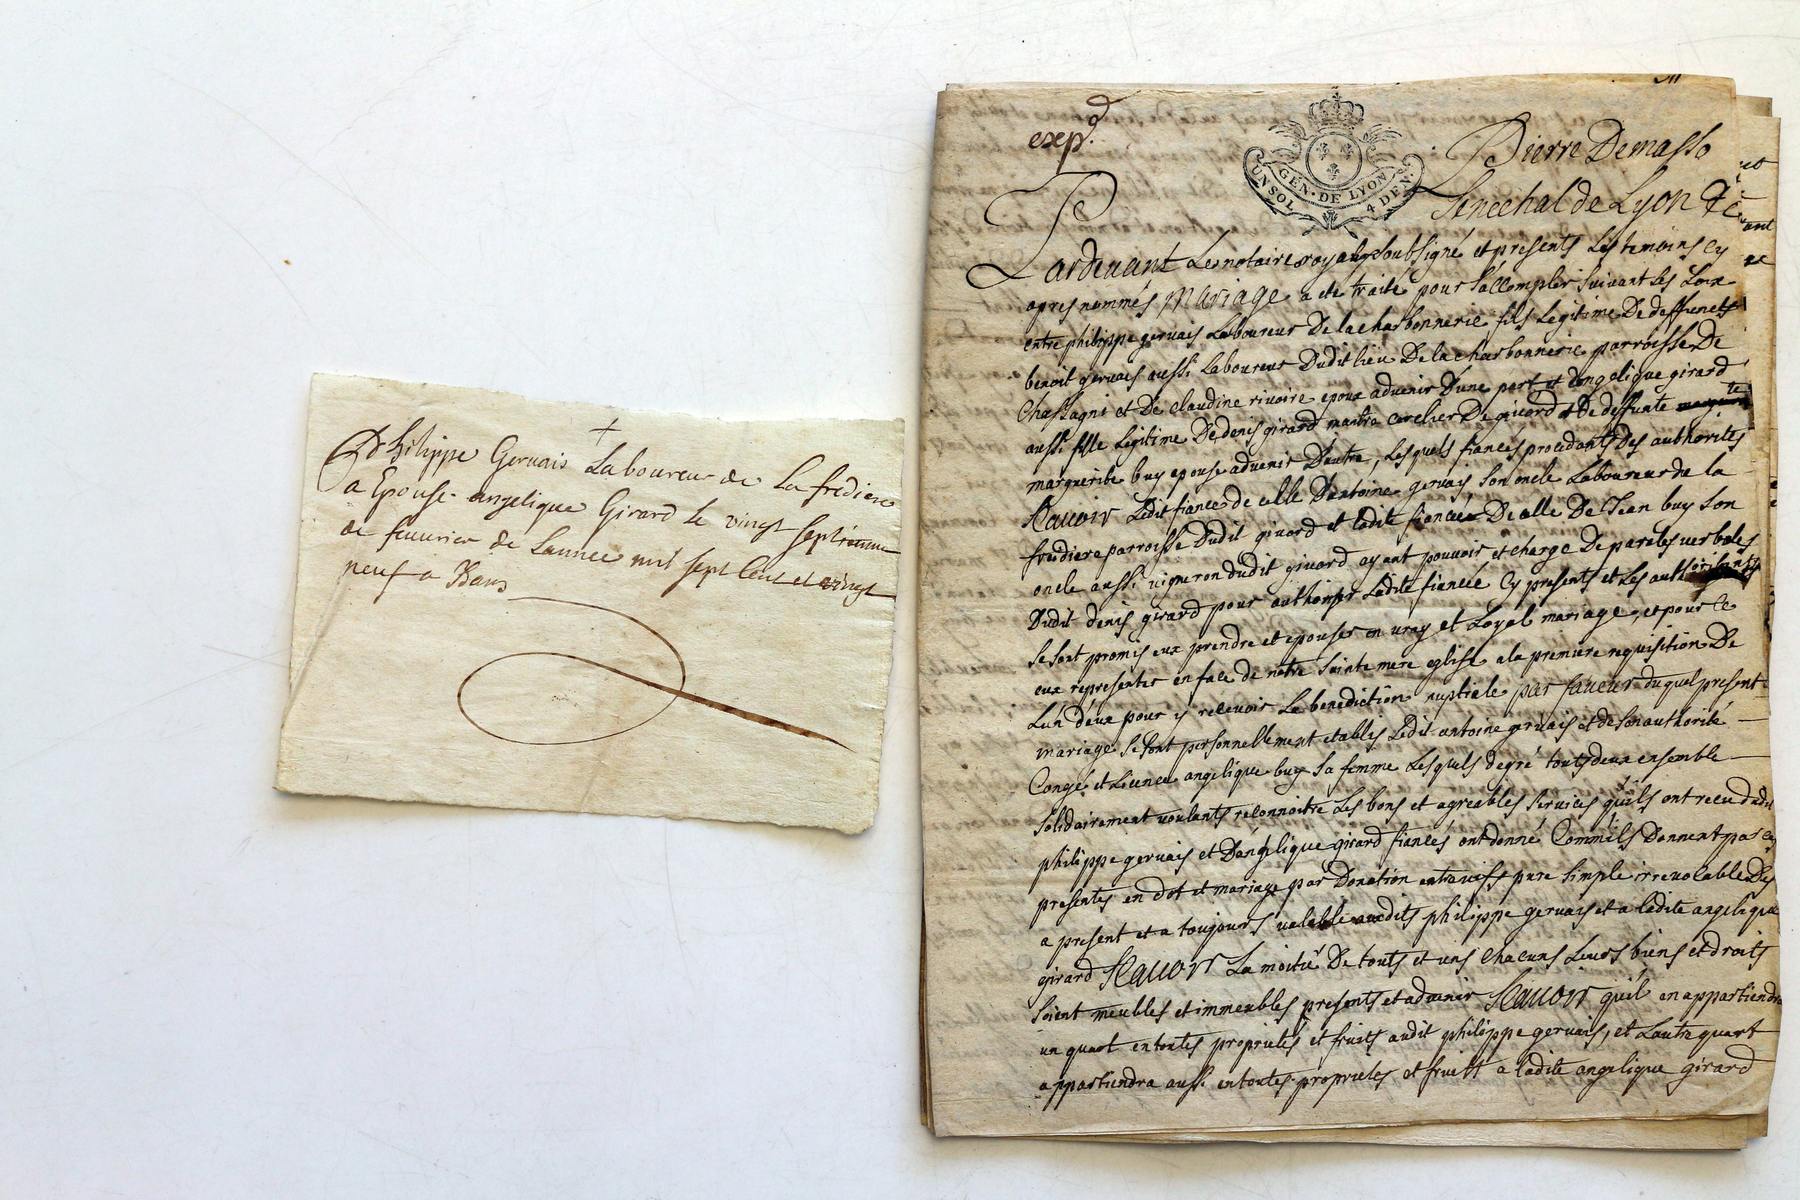 +
Philippe Gervais Laboureur de La frediere
a Epousé angelique Girard Le vingt septieme
de feuurier de Lannee mil sept Cent et vingt
neuf a Bans
expd.
GEN. DE LYON
UN SOL 4 DEN.
Pierre Demasso
Senechal de Lyon &c
Pardevant Le notaire royal soubsigné et presents Les temoins cy
apres nommés Mariage a eté traité pour sáccomplir suivant Les Loix
entre philippe gervais Laboureur De la charbonnerie fils Legitime De deffunts
benoit gervais aussi Laboureur Dudit lieu De la charbonnerie parroisse De
Chassagni et De claudine rivoire epoux advenir Dúne part et dangelique girard
aussi fille Legitime De denis girard maitre cerclier De givord et De deffunte
marguerite buy epouse advenir Dáutre, Lesquels fiancés procedants Des authorités
Scauoir Ledit fiancé de celle Dántoine gervais son oncle Laboureur de la
freidiere parroisse Dudit givord et Ladite fiancée De celle De Jean buy son
oncle aussi vigneron dudit givord ayant pouvoir et charge De paroles verbales
Dudit denis girard pour authoriser Ladite fiancée Cy presents et Les authorisants
se sont promis eux prendre et epouser en vray et Loyal mariage, et pour ce
eux representer en face de notre sainte mere eglise a la premiere requisition De
Lún déux pour y recevoir La benediction nuptiale par faveur duquel present
mariage se sont personnellement etablis Ledit antoine gervais et de son authorité
Congé et Licence angelique buy sa femme Lesquels de gré touts deux ensemble
solidairement voulants reconnoitre Les bons et agreables services quíls ont recu dudit
philippe gervais et Dángelique girard fiancés ont donné Commíls Donnent par ces
presentes en dot et mariage par Donation entre vifs pure simple irrevocable Des
a present et a toujours valable auxdits philippe gervais et a ladite angelique
girard Scauoir La moitié De touts et uns chacuns Leurs biens et droits
soient meubles et immeubles presents et advenir Scauoir quíl en appartiendra
un quart en toutes proprietés et fruits audit philippe gervais, et Láutre quart
appartiendra aussi en toutes proprietés et fruits a ladite angelique girard